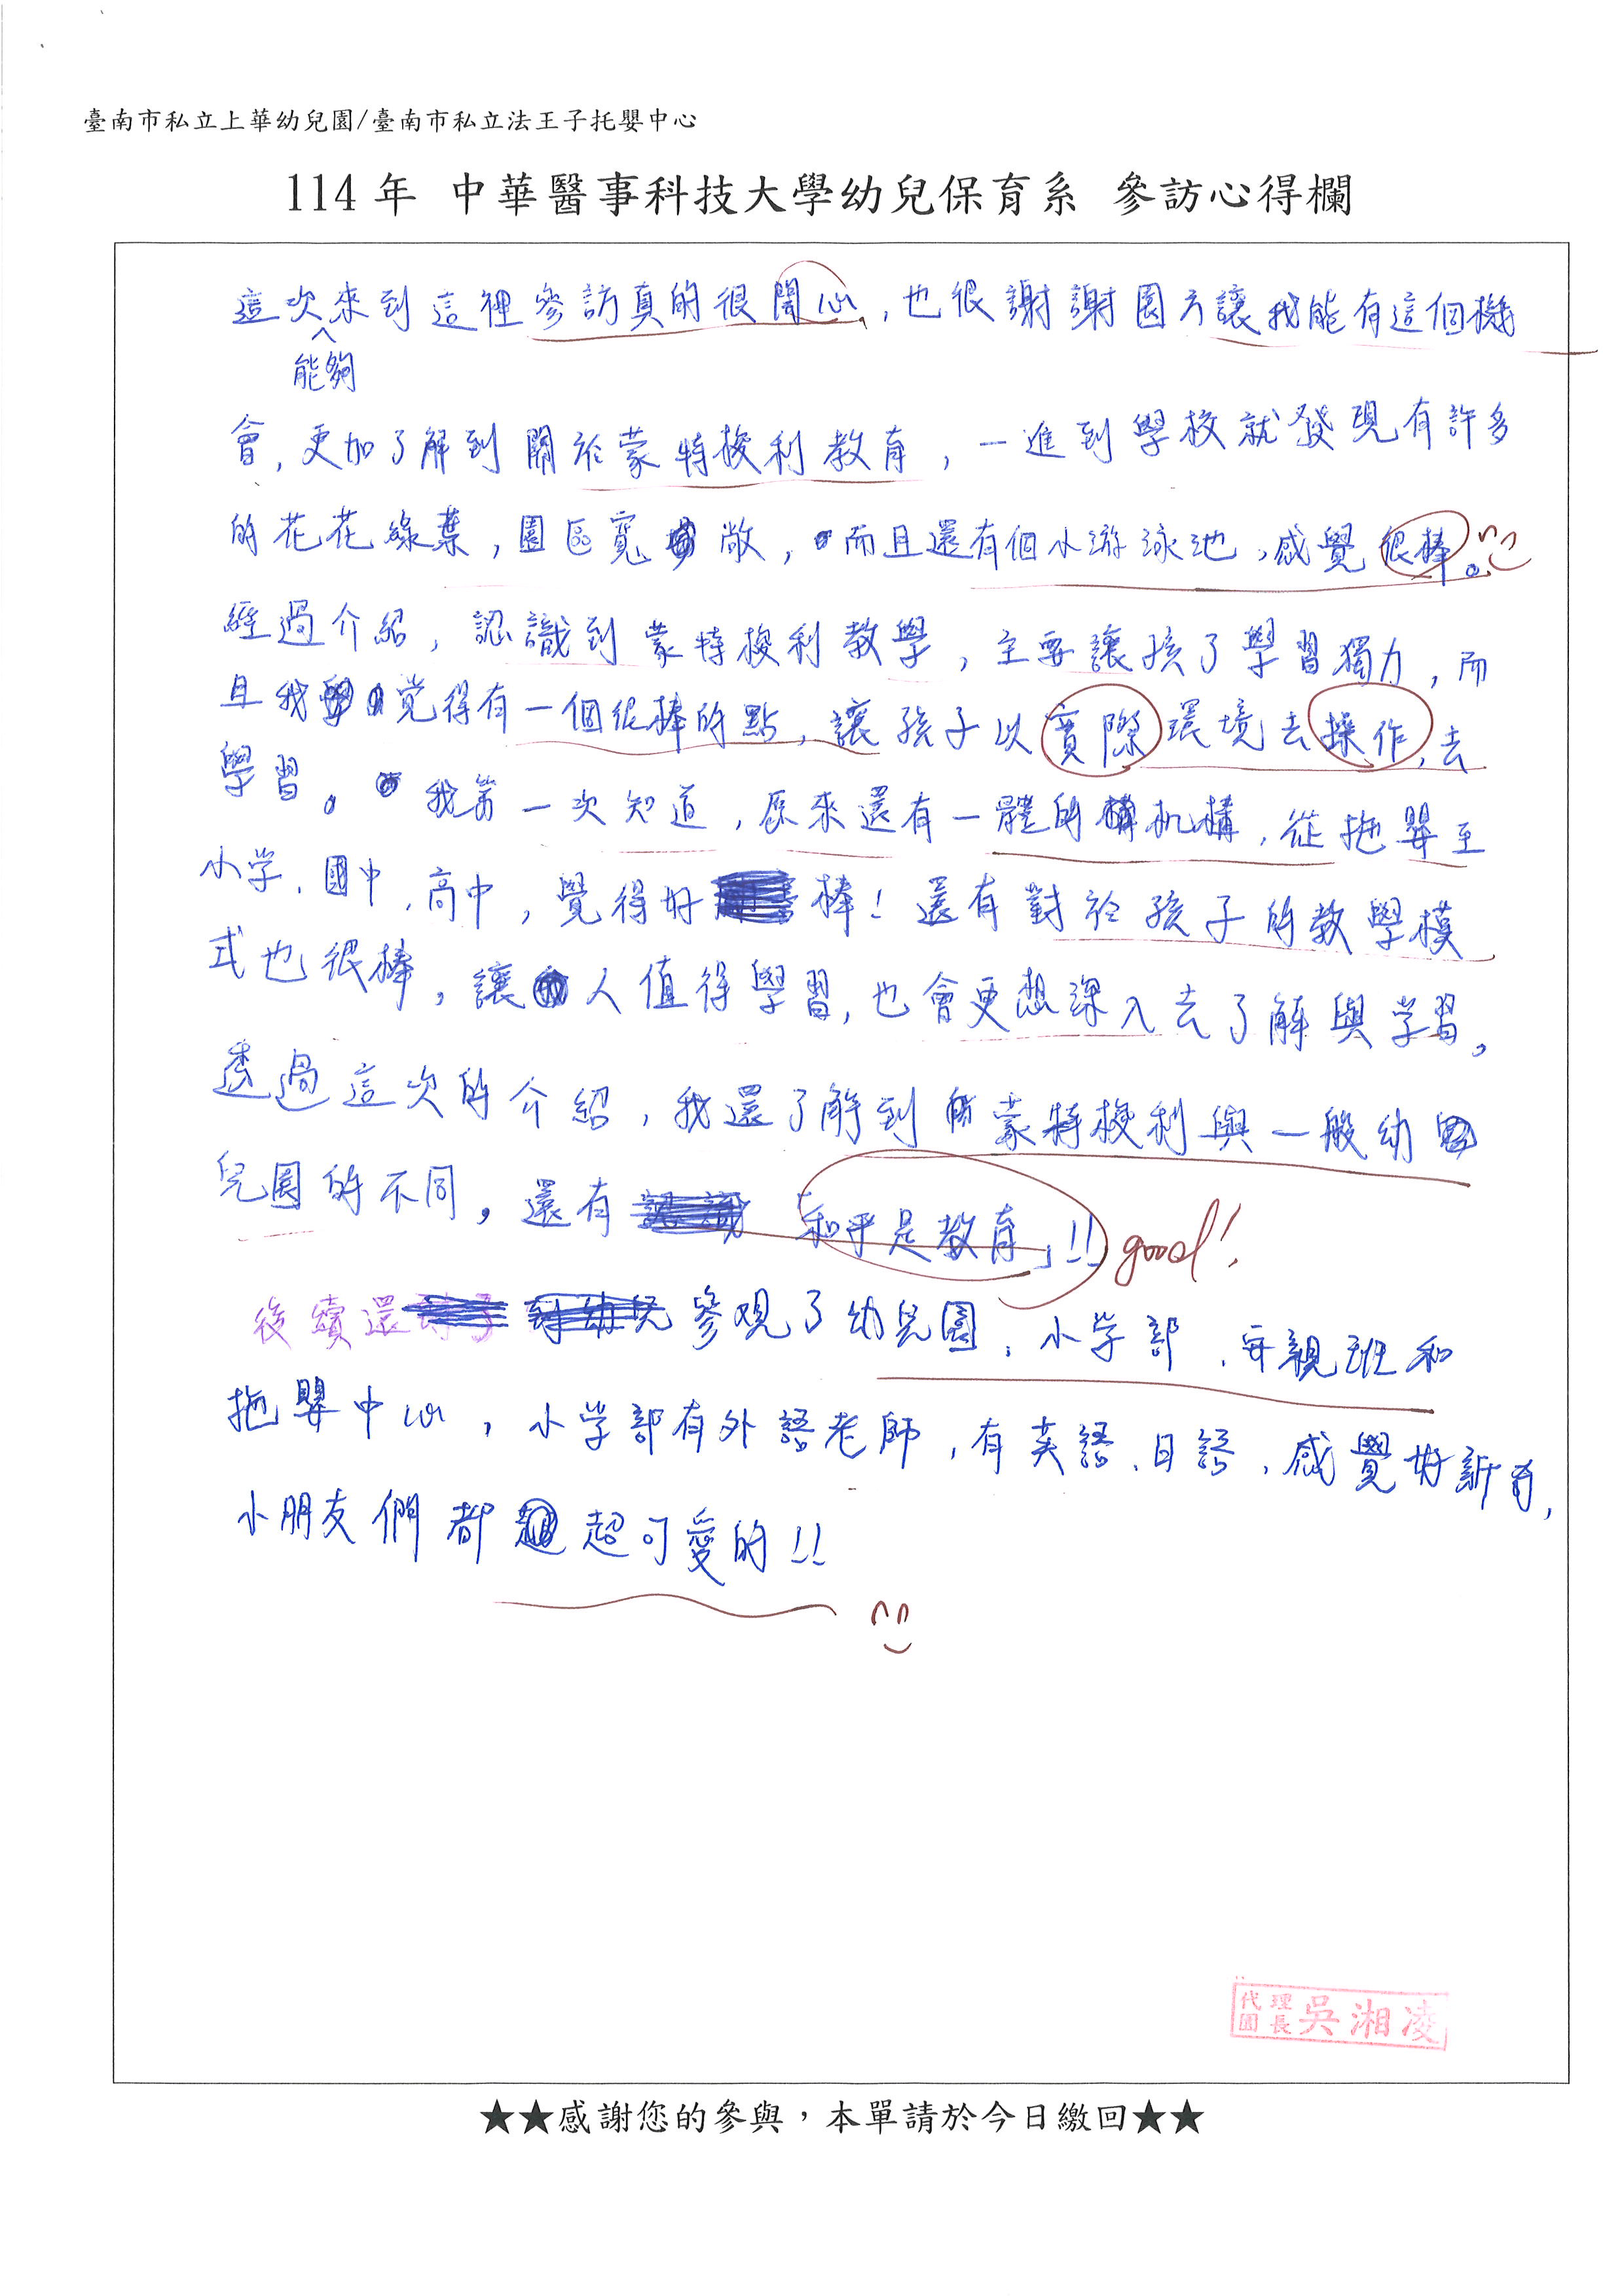 臺南市私立上華幼兒園/臺南市私立法王子托嬰中心
114 年 中華醫事科技大學幼兒保育系 參訪心得欄
這次來到這裡參訪真的很開心,也很謝謝園方讓我能有這個機
能夠
會,更加了解到關於蒙特梭利教育,一進到學校就發現有許多
的花花綠葉,園區寬敞,而且還有個小游泳池,感覺很棒。
經過介紹,認識到蒙特梭利教學,主要讓孩子學習獨力,而
且我覚得有一個很棒的點,讓孩子以實際環境去操作,去
學習。我第一次知道,原來還有一體的机構,從拖嬰至
小学、國中、高中,覺得好棒!還有對於孩子的教學模
式也很棒,讓人值得學習,也會更想深入去了解與学習。
透過這次的介紹,我還了解到蒙特梭利與一般幼
兒園的不同。還有「和平是教育」!! good!
後續還參观了幼兒園、小学部、安親班和
拖嬰中心,小学部有外語老師,有英語、日語,感覺好新奇,
小朋友們都超可愛的!!
代理園長 吳湘凌
★★感謝您的參與,本單請於今日繳回★★